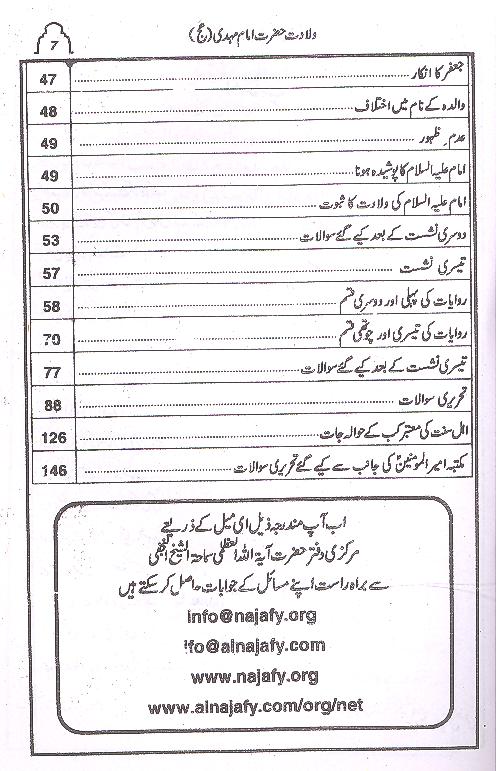 ولادت حضرت امام مہدی (عج) 7
جعفر کا انکار ........ 47
والدہ کے نام میں اختلاف ........ 48
عدم ظہور ........ 49
امام علیہ السلام کا پوشیدہ ہونا ........ 49
امام علیہ السلام کی ولادت کا ثبوت ........ 50
دوسری نشست کے بعد کیے گئے سوالات ........ 53
تیسری نشست ........ 57
روایات کی پہلی اور دوسری قسم ........ 58
روایات کی تیسری اور چوتھی قسم ........ 70
تیسری نشست کے بعد کیے گئے سوالات ........ 77
تحریری سوالات ........ 88
اہل سنت کی معتبر کتب کے حوالہ جات ........ 126
مکتبہ امیر المومنینؑ کی جانب سے کیے گئے تحریری سوالات ........ 146
اب آپ مندرجہ ذیل ای میل کے ذریعے
مرکزی دفتر حضرت آیۃ اللہ العظمٰی سماحۃ الشیخ النجفی
سے براہ راست اپنے مسائل کے جوابات حاصل کر سکتے ہیں
info@najafy.org
fo@alnajafy.com
www.najafy.org
www.alnajafy.com/org/net